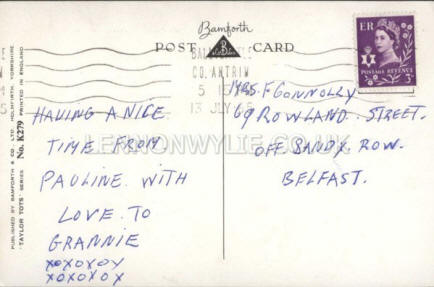 Bamforth
POST CARD
CO. ANTRIM
13 JLY
ER
POSTAGE REVENUE
3D
HAVING A NICE
TIME FROM
PAULINE WITH
LOVE TO
GRANNIE
XOXOXOX
XOXOXOX
MRS. F CONNOLLY
69 ROWLAND. STREET.
OFF SANDY. ROW.
BELFAST.
LENNONWYLIE.CO.UK
PUBLISHED BY BAMFORTH & CO., LTD. HOLMFIRTH, YORKSHIRE
"TAYLOR TOTS" SERIES No. K279 PRINTED IN ENGLAND